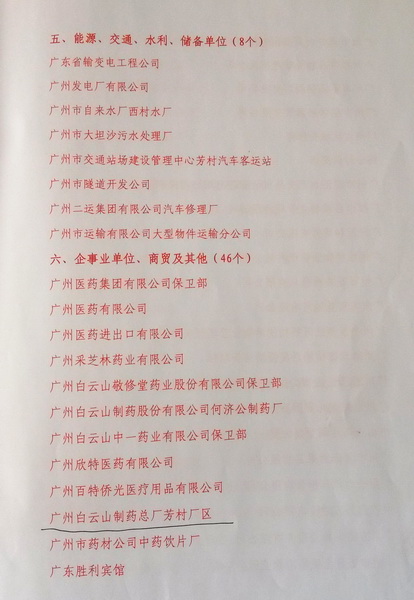 五、能源、交通、水利、储备单位（8个）
广东省输变电工程公司
广州发电厂有限公司
广州市自来水厂西村水厂
广州市大坦沙污水处理厂
广州市交通站场建设管理中心芳村汽车客运站
广州市隧道开发公司
广州二运集团有限公司汽车修理厂
广州市运输有限公司大型物件运输分公司
六、企事业单位、商贸及其他（46个）
广州医药集团有限公司保卫部
广州医药有限公司
广州医药进出口有限公司
广州采芝林药业有限公司
广州白云山敬修堂药业股份有限公司保卫部
广州白云山制药股份有限公司何济公制药厂
广州白云山中一药业有限公司保卫部
广州欣特医药有限公司
广州百特侨光医疗用品有限公司
广州白云山制药总厂芳村厂区
广州市药材公司中药饮片厂
广东胜利宾馆